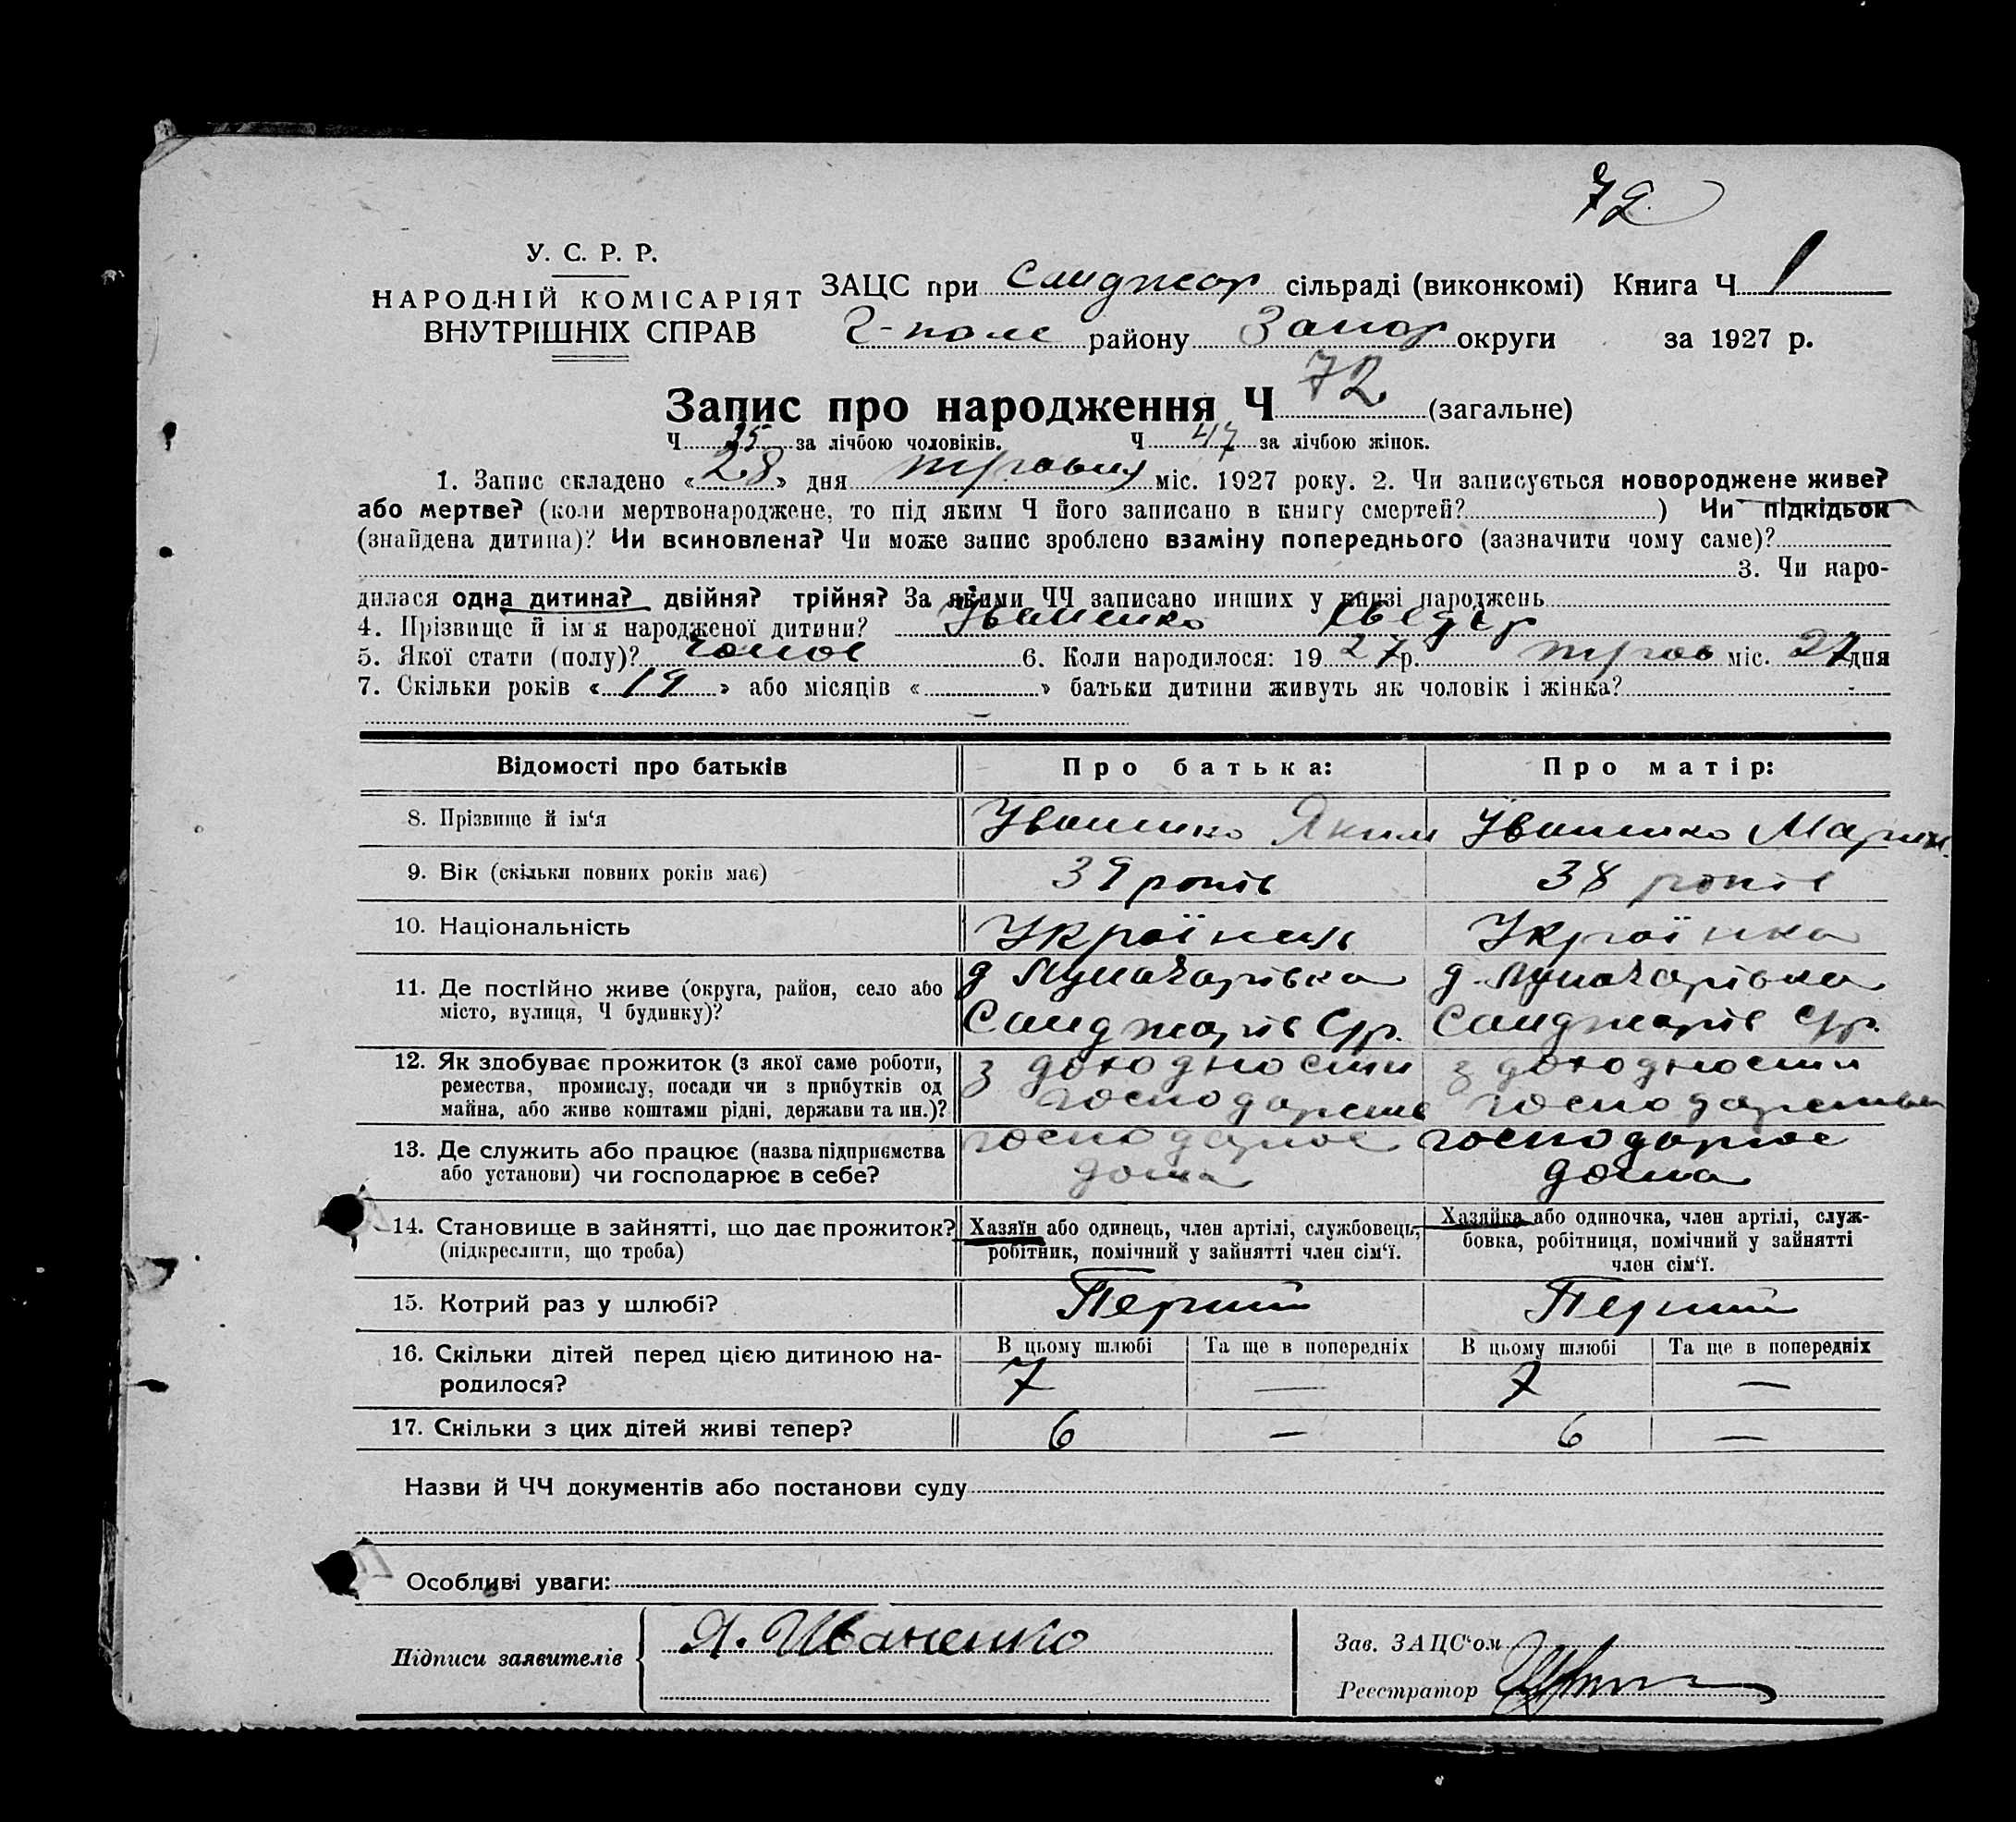 72
У. С. Р. Р.
НАРОДНІЙ КОМІСАРІЯТ
ВНУТРІШНІХ СПРАВ
ЗАЦС при Санджар сільраді (виконкомі) Книга Ч 1
Г-поле району Запор округи за 1927 р.
Запис про народження Ч 72 (загальне)
Ч 25 за лічбою чоловіків. Ч 47 за лічбою жінок.
1. Запис складено «28» дня травня міс. 1927 року. 2. Чи записується новороджене живе?
або мертве? (коли мертвонароджене, то під яким Ч його записано в книгу смертей? ) Чи підкідьок
(знайдена дитина)? Чи всиновлена? Чи може запис зроблено взаміну попереднього (зазначити чому саме)?
3. Чи наро-
дилася одна дитина? двійня? трійня? За якими ЧЧ записано инших у книзі народжень
4. Прізвище й ім'я народженої дитини? Іваненко
5. Якої стати (полу)? чолов 6. Коли народилося: 1927р. трав міс. 27 дня
7. Скільки років «19» або місяців « » батьки дитини живуть як чоловік і жінка?
Відомості про батьків Про батька: Про матір:
8. Прізвище й ім'я Іваненко Яким Іваненко Марин
9. Вік (скільки повних років має) 39 років 38 років
10. Національність Українець Українка
11. Де постійно живе (округа, район, село або місто, вулиця, Ч будинку)? д Луначарівка д. Луначарівка
Санджарів С/р. Санджарів С/р.
12. Як здобуває прожиток (з якої саме роботи, ремества, промислу, посади чи з прибутків од майна, або живе коштами рідні, держави та ин.)? з доходности з доходности
господарств господарства
13. Де служить або працює (назва підприємства або установи) чи господарює в себе? господарює господарює
дома дома
14. Становище в зайнятті, що дає прожиток? (підкреслити, що треба) Хазяїн або одинець, член артілі, службовець, робітник, помічний у зайнятті член сім'ї. Хазяйка або одиночка, член артілі, служ-
бовка, робітниця, помічний у зайнятті
член сім'ї.
15. Котрий раз у шлюбі? Перший Перший
16. Скільки дітей перед цією дитиною на-
родилося? В цьому шлюбі Та ще в попередніх В цьому шлюбі Та ще в попередніх
7 — 7 —
17. Скільки з цих дітей живі тепер? 6 — 6 —
Назви й ЧЧ документів або постанови суду
Особливі уваги:
Підписи заявителів Я. Иваненко
Зав. ЗАЦС'ом
Реєстратор